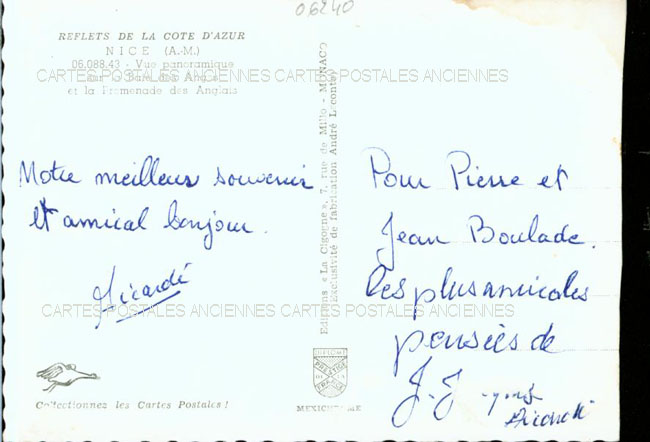 06240
REFLETS DE LA COTE D'AZUR
NICE (A.-M.)
06.088.43 - Vue panoramique
sur la Baie des Anges
et la Promenade des Anglais
CARTES POSTALES ANCIENNES CARTES POSTALES ANCIENNES
Notre meilleur souvenir
et amical bonjour.
Picardé
Editions « La Cigogne », 7, rue de Millo - MONACO
(Exclusivité de fabrication André Leconte)
Pour Pierre et
Jean Boulade.
les plus amicales
pensées de
J.J.
CARTES POSTALES ANCIENNES CARTES POSTALES ANCIENNES
PRESTIGE
MEXICHROME
Collectionnez les Cartes Postales !